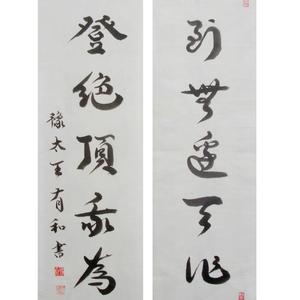 到無邊天作
登絕頂我為
豫太王有和書